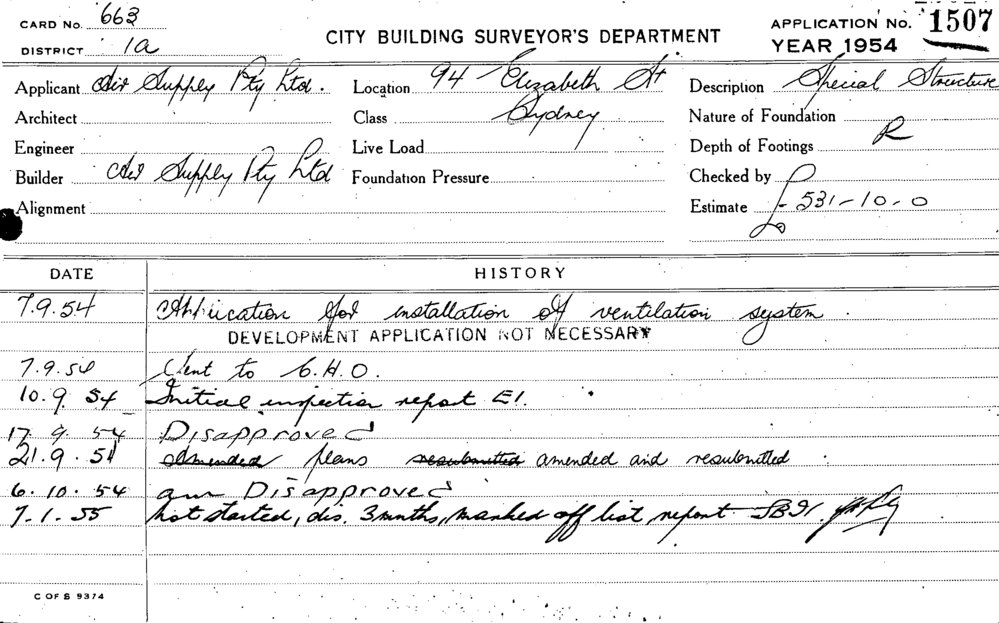 CARD No. 663
DISTRICT 1a
CITY BUILDING SURVEYOR'S DEPARTMENT
APPLICATION No. 1507
YEAR 1954
Applicant Air Supply Pty Ltd. Location 94 Elizabeth St Description Special Structure
Architect Class Sydney Nature of Foundation
Engineer Live Load Depth of Footings R
Builder Air Supply Pty Ltd Foundation Pressure Checked by
Alignment Estimate £531-10-0
DATE HISTORY
7.9.54 Application for installation of ventilation system.
DEVELOPMENT APPLICATION NOT NECESSARY
7.9.54 Sent to C.H.O.
10.9.54 Initial inspection report E1.
17.9.54 Disapproved
21.9.54 amended plans resubmitted amended and resubmitted
6.10.54 Disapproved
7.1.55 Not started, dis. 3 mnths, marked off list, report
C OF S 9374